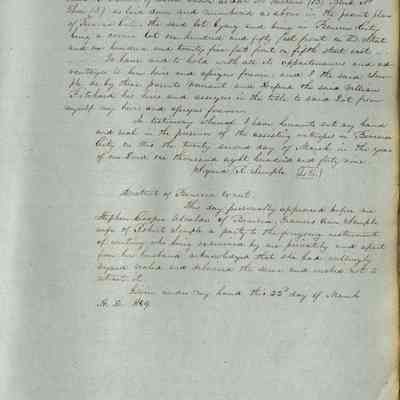 Thirty) as laid down and numbered as above in the parent plan
of Benicia City. the said lot lying and being in Benicia City
being a corner lot one hundred and fifty feet front on D Street
and one hundred and twenty five feet front on fifth street east.
To have and to hold with all its appurtenances and ad
vantages to him heirs and assigns forever. and I the said Sem
ple do by these presents warrant and defend the said William
Pritchard his heirs and assigns in the title to said Lot from
myself my heirs and assigns forever.
In testimony whereof I have hereunto set my hand
and seal in the presence of the assisting witness in Benicia
City on this the twenty second day of March in the year
of our Lord one thousand eight hundred and forty nine
Signed R. Semple
District of Benicia to wit.
This day personally appeared before me
Stephen Cooper Alcalde of Benicia, Frances Ann Semple
wife of Robert Semple a party to the foregoing instrument
of writing who being examined by me privately and apart
from her husband acknowledged that she had willingly
signed sealed and delivered the same and wished not to
retract it.
Given under my hand this 22d day of March
A. D. 1849.